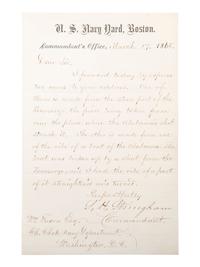 U. S. Navy Yard, Boston.
Commandant's Office, March 17, 186
Dear Sir,
I forward today by express
two canes to your address. One of
them is made from the stern post of the
Kearsarge, the piece being taken from
near the place where the Alabama's shot
struck it. The other is made from one
of the ribs of a boat of the Alabama. The
boat was broken up by a shot from the
Kearsarge
of it straightened
Respectfully
S. H. Stringham
Commandant
Wm Esq.
Ch. Clerk Navy Department
Washington, D. C.